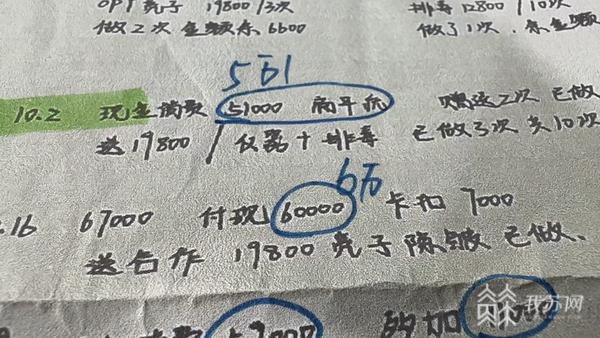 OPT 壳子 19800/3次 排毒 12800/10次
做2次 金额东6600 做了1次.
5万1
10.2 现金消费 51000 南平疣 赠送2次 已做
送19800/仪器+排毒 已做了3次 共10次
6万
.16 67000 付现 60000 卡扣 7000
送合作 19800 壳子 除皱 已做.
的加
我苏网